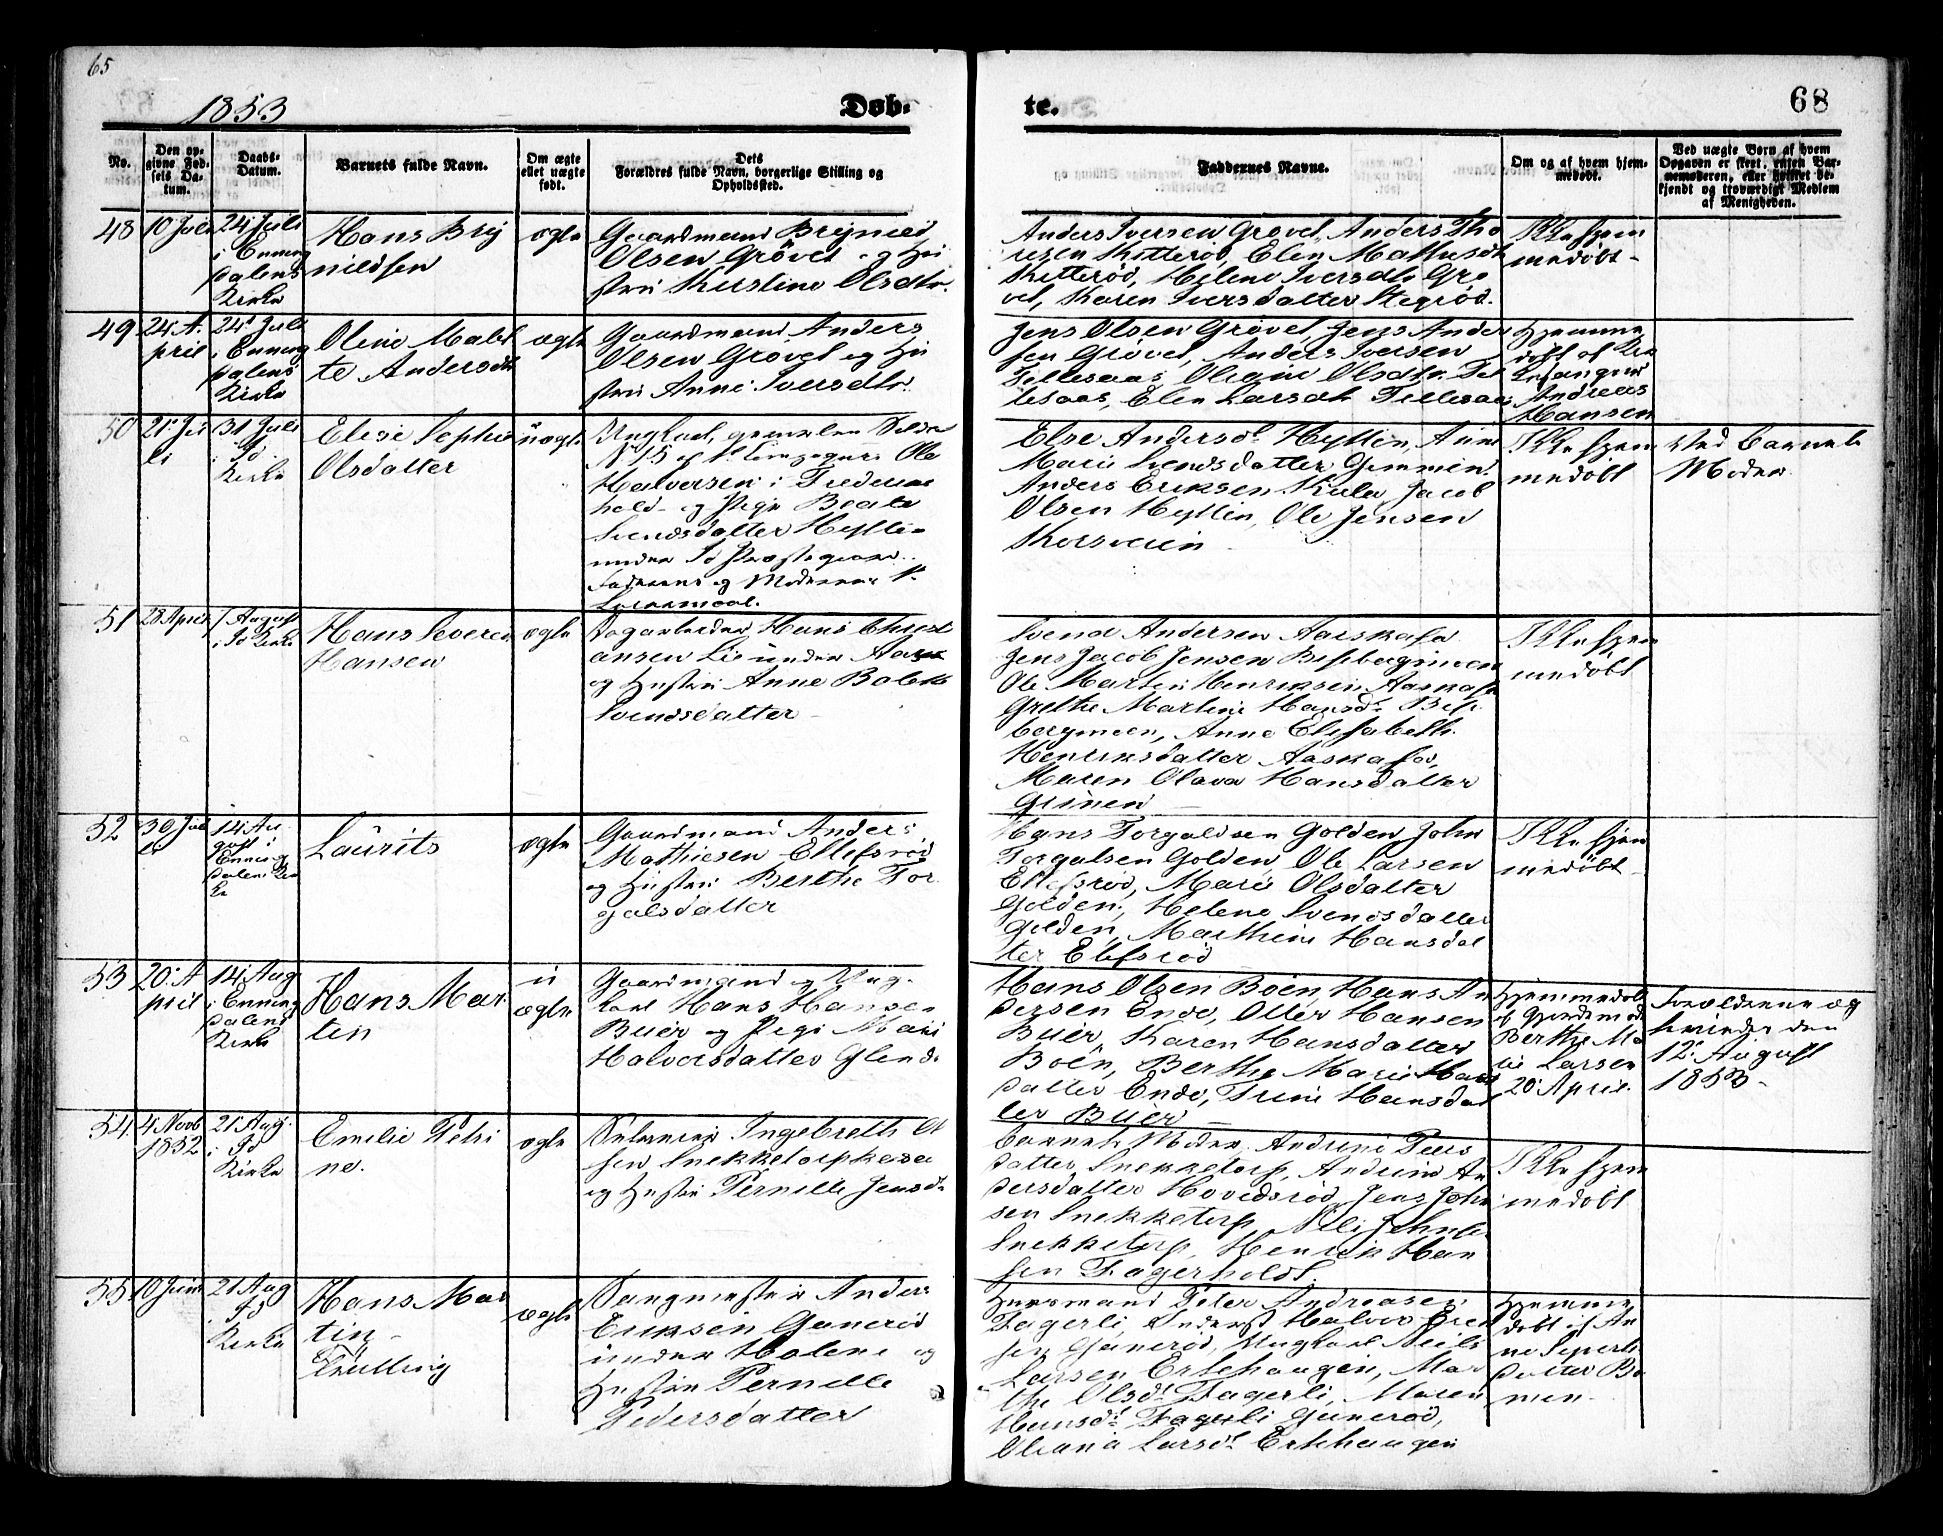 65
1853
Døb-
te.
68
No.
Den op-
givne Fød-
sels Da-
tum.
Daabs-
Datum.
Barnets fulde Navn.
Om ægte
ellet uægte
født.
Dets
Forældres fulde Navn, borgerlige Stilling og
Opholdssted.
Faddernes Navne.
Om og af hvem hjem-
medøbt.
Ved uægte Børn af hvem
Opgaven er skeet, enten Bar-
nemoderen, eller hvilket be-
kjendt og troværdigt Medlem
af Menigheden.
48
10 Juli
24 Juli
i Enning
dalens
Kirke
Hans Bryn
nildsen
ægte
Gaardmand Brynild
Olsen Grövel og Hu
stru Kirstine Olsdtr.
Anders Iversen Grövel, Anders Tho
resen Kitteröd, Elen Mathisdtr
Kitteröd, Helene Iversdtr Grö
vel, Karen Iversdatter Stegröd.
Ikke hjem
medöbt
49
24 A.
pril
24 Juli
i Enning
dalens
Kirke
Oline Malet
te Andersdtr
ægte
Gaardmand Anders
Olsen Grövel og Hu
stru Anne Iversdtr.
Jens Olsen Grövel, Jens Ander
sen Grövel, Anders Iversen
Tellesaas, Oleane Olsdtr Tel
lesaas, Elen Larsdtr Tellesaas
Hjemme
döbt af Kir
kesanger
Andreas
Hansen
50
21 Ju
li
31 Juli
i Id
Kirke
Elise Sophie
Olsdatter
uægte
Ungkarl, gemeen Soldat
N 15 Ole
Halvorsen i Frederiks
hald og Pige Beate
Svendsdatter Hyllin
under Id Præstegaard.
Faderens og Moderens 1ste
Leiermaal.
Else Andersdr Hyllin, Anne
Marie Svendsdatter Gimmen,
Anders Eriksen Kula, Jacob
Olsen Hyllin, Ole Jensen
Korsveien
Ikke hjem
medöbt
Ved Barnets
Moder
51
28 April
7 August
i Id Kirke
Hans Severin
Hansen
ægte
Dagarbeider Hans Christ
iansen Lie under
og Hustru Anne Bolette
Svendsdatter
Svend Andersen Aaskasa
Jens Jacob Jensen
Ole Martin Henriksen Aaskasa
Grethe Martine Hansdr
Anne Elisabeth
Henriksdatter Aaskasa,
Maren Olava Hansdatter
Ikke hjem
medöbt
52
30 Ju
li
14 Au
gust i
Enning
dalens Kir
ke
Laurits
ægte
Gaardmand Anders
Mathiesen Ellefsröd
og Hustru Berthe Tor
galsdatter
Hans Torgalsen Golden, John
Torgalsen Golden, Ole Larsen
Ellefsröd, Mari Olsdatter
Golden, Helene Svendsdatter
Golden, Marthine Hansdat
ter Elefsröd
Ikke hjem
medöbt
53
20 A
pril
14 Aug
i Enning
dalens
Kirke
Hans Mar
tin
u
ægte
Gaardmand og Ung-
karl Hans Hansen
Buer og Pige Mari
Halvorsdatter
Hans Olsen Böen, Hans An
dersen Ende, Oller Hansen
Buer, Karen Hansdatter
Böen, Berthe Marie Hans
datter Ende, Trine Hansdat
ter Buer
Hjemmedöbt
af Gjordemoder
Berthe Ma
rie Larsen
20 April
Forældrene æg
tevieder den
12 August
1853
54
4 Novb
1852
21 Aug.
i Id
Kirke
Emilie Petri
ne.
ægte
Ingebreth Ol
sen Snekketorpkasa
og Hustru Pernille Jensdr
Barnets Moder, Andrine Peers
datter Snekketorp, Andrine An
dersdatter Hovedsröd, Jens John
sen Snekketorp, Nils Johnsen
Snekketorp, Henrik Han
sen Fagerholdt.
Ikke hjem
medöbt
55
10 Juni
21 Aug
i Id
Kirke
Hans Mar
tin
Tvilling
ægte
Anders
Eriksen Guneröd
under Holene og
Hustru Pernille
Pedersdatter
Huusmand Peter Andreasen
Fagerli, Halvor Erik
sen Guneröd, Ungkarl Neils
Larsen Ertehaugen, Mar
the Olsdr Fagerli, Maren
Hansdr Fagerli Guneröd,
Oleana Larsdr Ertehaugen
Hjemme
döbt af An
ne
datter Bo
men